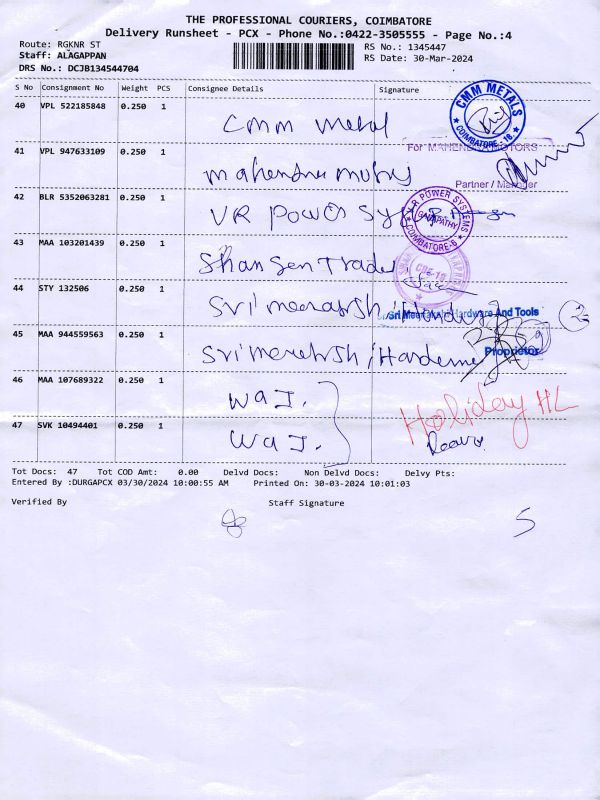 THE PROFESSIONAL COURIERS, COIMBATORE
Delivery Runsheet - PCX - Phone No.:0422-3505555 - Page No.:4
Route: RGKNR ST RS No.: 1345447
Staff: ALAGAPPAN RS Date: 30-Mar-2024
DRS No.: DCJB134544704
S No Consignment No Weight PCS Consignee Details Signature
40 VPL 522185848 0.250 1 CMM Metal
CMM METALS
COIMBATORE - 18.
41 VPL 947633109 0.250 1 Mahendra
For MAHENDRA MOTORS
Partner / Manager
42 BLR 5352063281 0.250 1 VR Power
VR POWER SYSTEMS
GANAPATHY
COIMBATORE-6
43 MAA 103201439 0.250 1 Shan Sen Trade
44 STY 132506 0.250 1 Sri
Sri Meenakshi Hardware And Tools
Proprietor
45 MAA 944559563 0.250 1 Sri
46 MAA 107689322 0.250 1
Holiday HL
47 SVK 10494401 0.250 1
Tot Docs: 47 Tot COD Amt: 0.00 Delvd Docs: Non Delvd Docs: Delvy Pts:
Entered By :DURGAPCX 03/30/2024 10:00:55 AM Printed On: 30-03-2024 10:01:03
Verified By Staff Signature
5